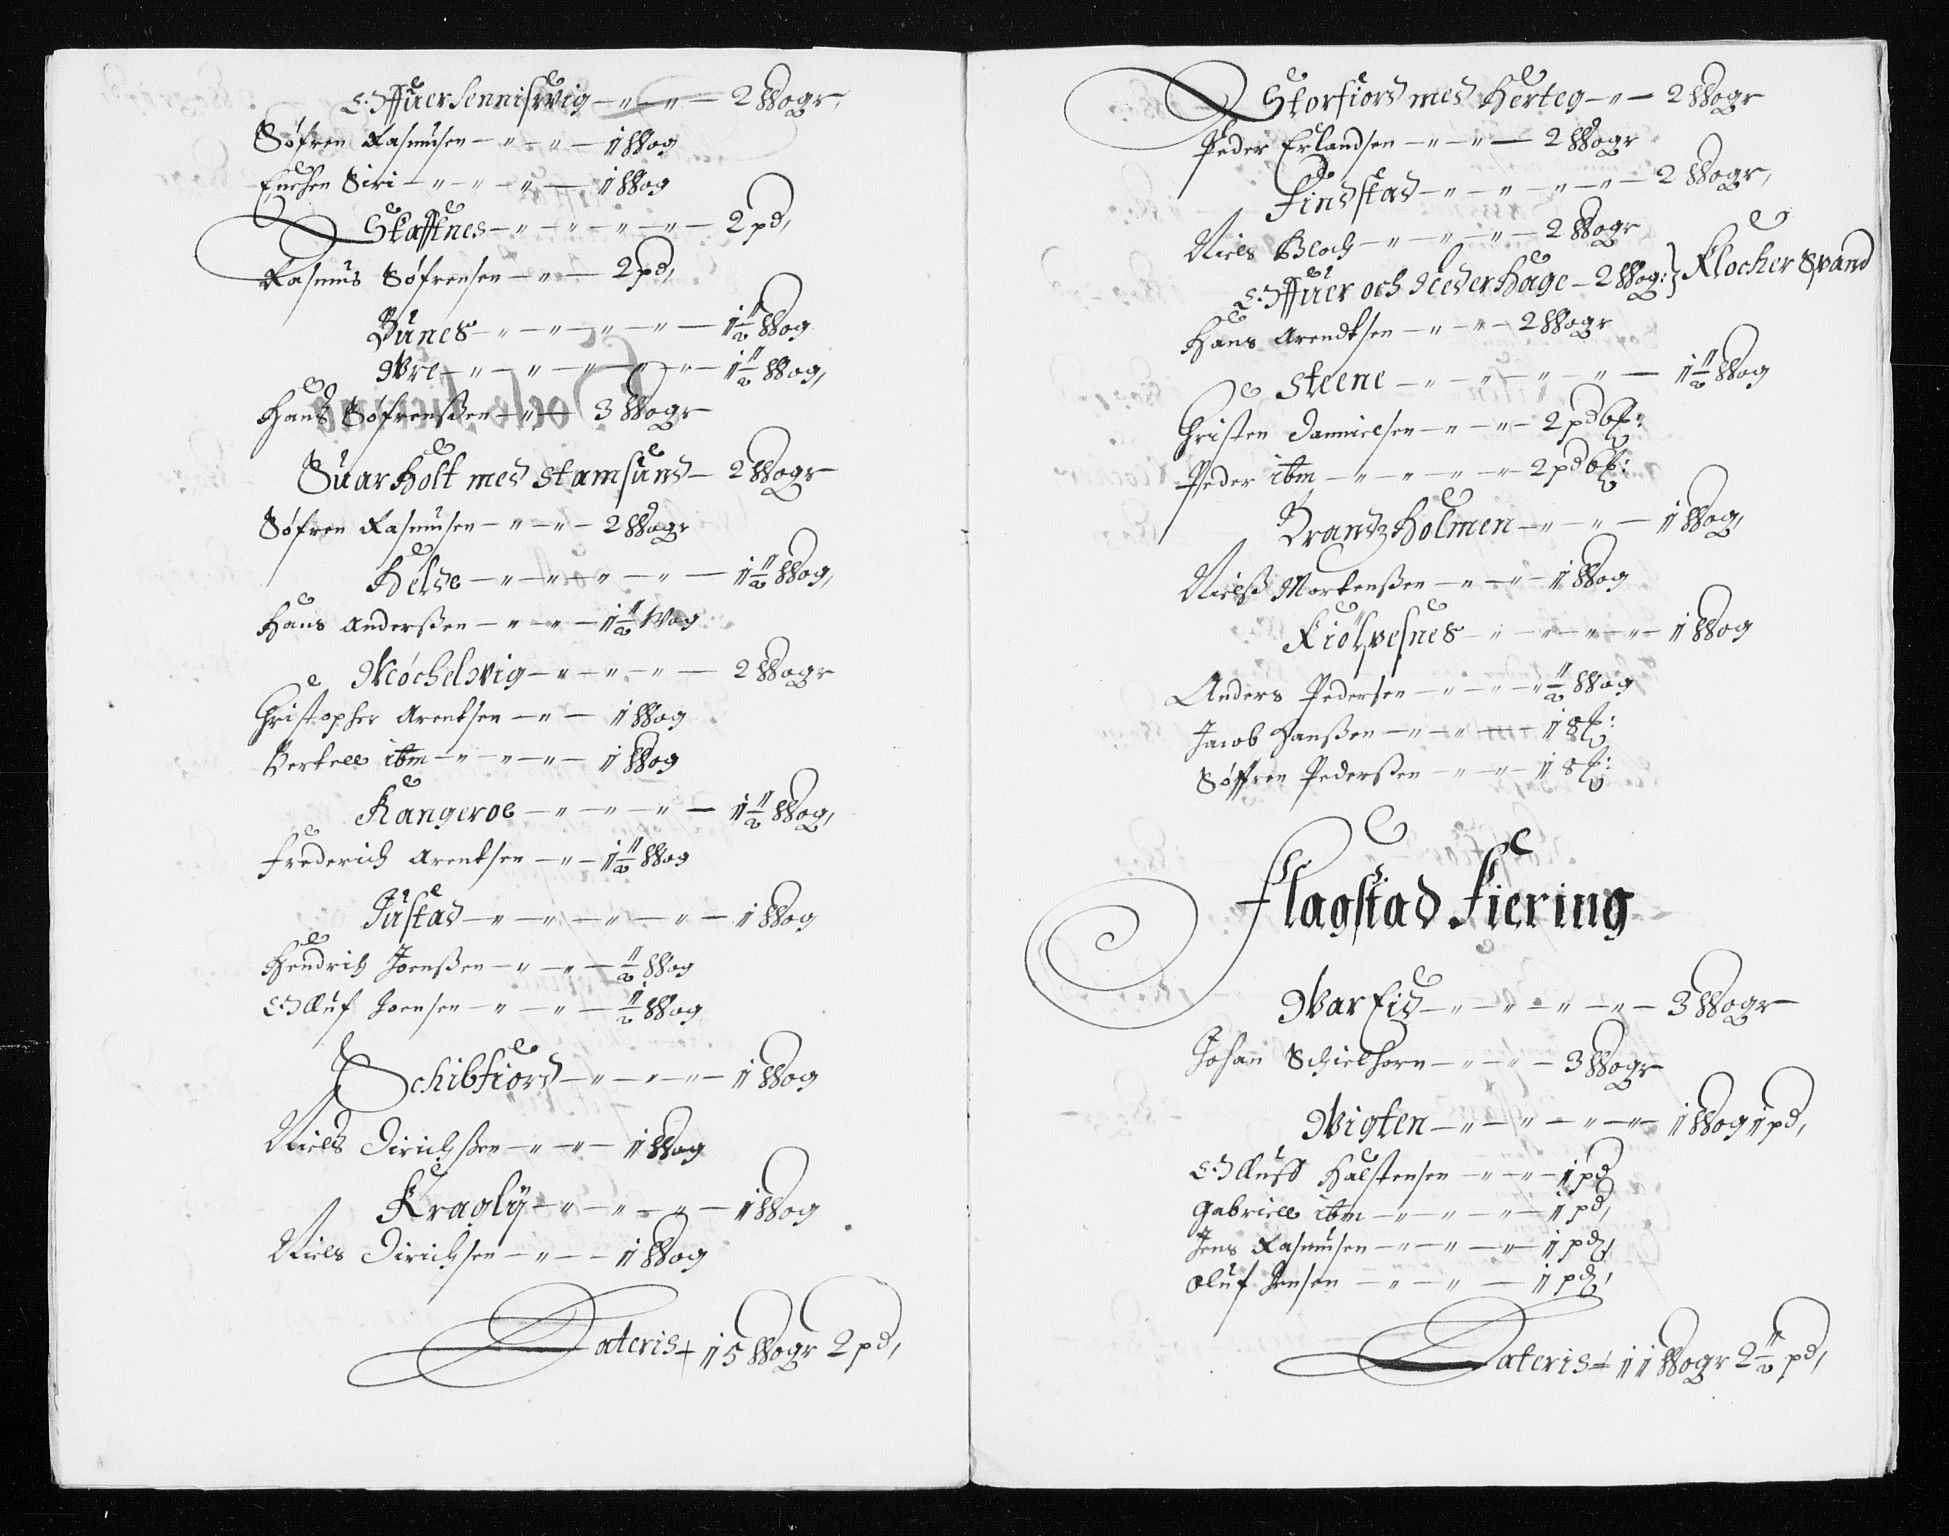 Offuer Sennisvig — 2 Wogr,
Søfren Rasmusen — 1 Wog
Enchen Siri — 1 Wog
Skafftnes — 2 pd,
Rasmus Søfrensen — 2 pd,
Bunes — 1½ Wog
Wre — 1½ Wog,
Hans Søfrenßen — 3 Wogr
Suarholt med Stamsund — 2 Wogr
Søfren Rasmusen — 2 Wogr
Helde — 1½ Wog,
Hans Anderßen — 1½ Wog
Møchelvig — 2 Wogr
Christopher Arentsen — 1 Wog
Bertell ibm — 1 Wog
Kangeroe — 1½ Wog,
Frederich Arentsen — 1½ Wog
Justad — 1 Wog
Hendrich Joenßen — ½ Wog
Olluf Joensen — ½ Wog
Schibfiord — 1 Wog
Niels Dirichßen — 1 Wog
Kragly — 1 Wog
Niels Dirichsen — 1 Wog
Lateris 15 Wogr 2 pd,
Storfiord med Herteg — 2 Wogr
Peder Erlandsen — 2 Wogr
Findstad — 2 Wogr,
Niels Bloch — 2 Wogr
Offuer och Neder Hage — 2 Wog: } Klocher Spand
Hans Arendtsen — 2 Wogr
Steene — 1½ Wog
Christen Dannielsen — 2 pd 6 ℔:
Peder ibm — 2 pd 6 ℔:
Brandzholmen — 1 Wog,
Nielß Mortenßen — 1 Wog
Kiølpesnes — 1 Wog
Anders Pedersen — ½ Wog
Jacob Hanßen — 18 ℔:
Søffren Pederßen — 18 ℔:
Flagstad Fiering
Warfid — 3 Wogr
Johan Schielhorn — 3 Wogr
Wigten — 1 Wog 1 pd,
Olluff Halstensen — 1 pd
Gabriell ibm — 1 pd,
Jens Rasmusen — 1 pd,
Oluf Jensen — 1 pd,
Lateris 11 Wogr 2½ pd,